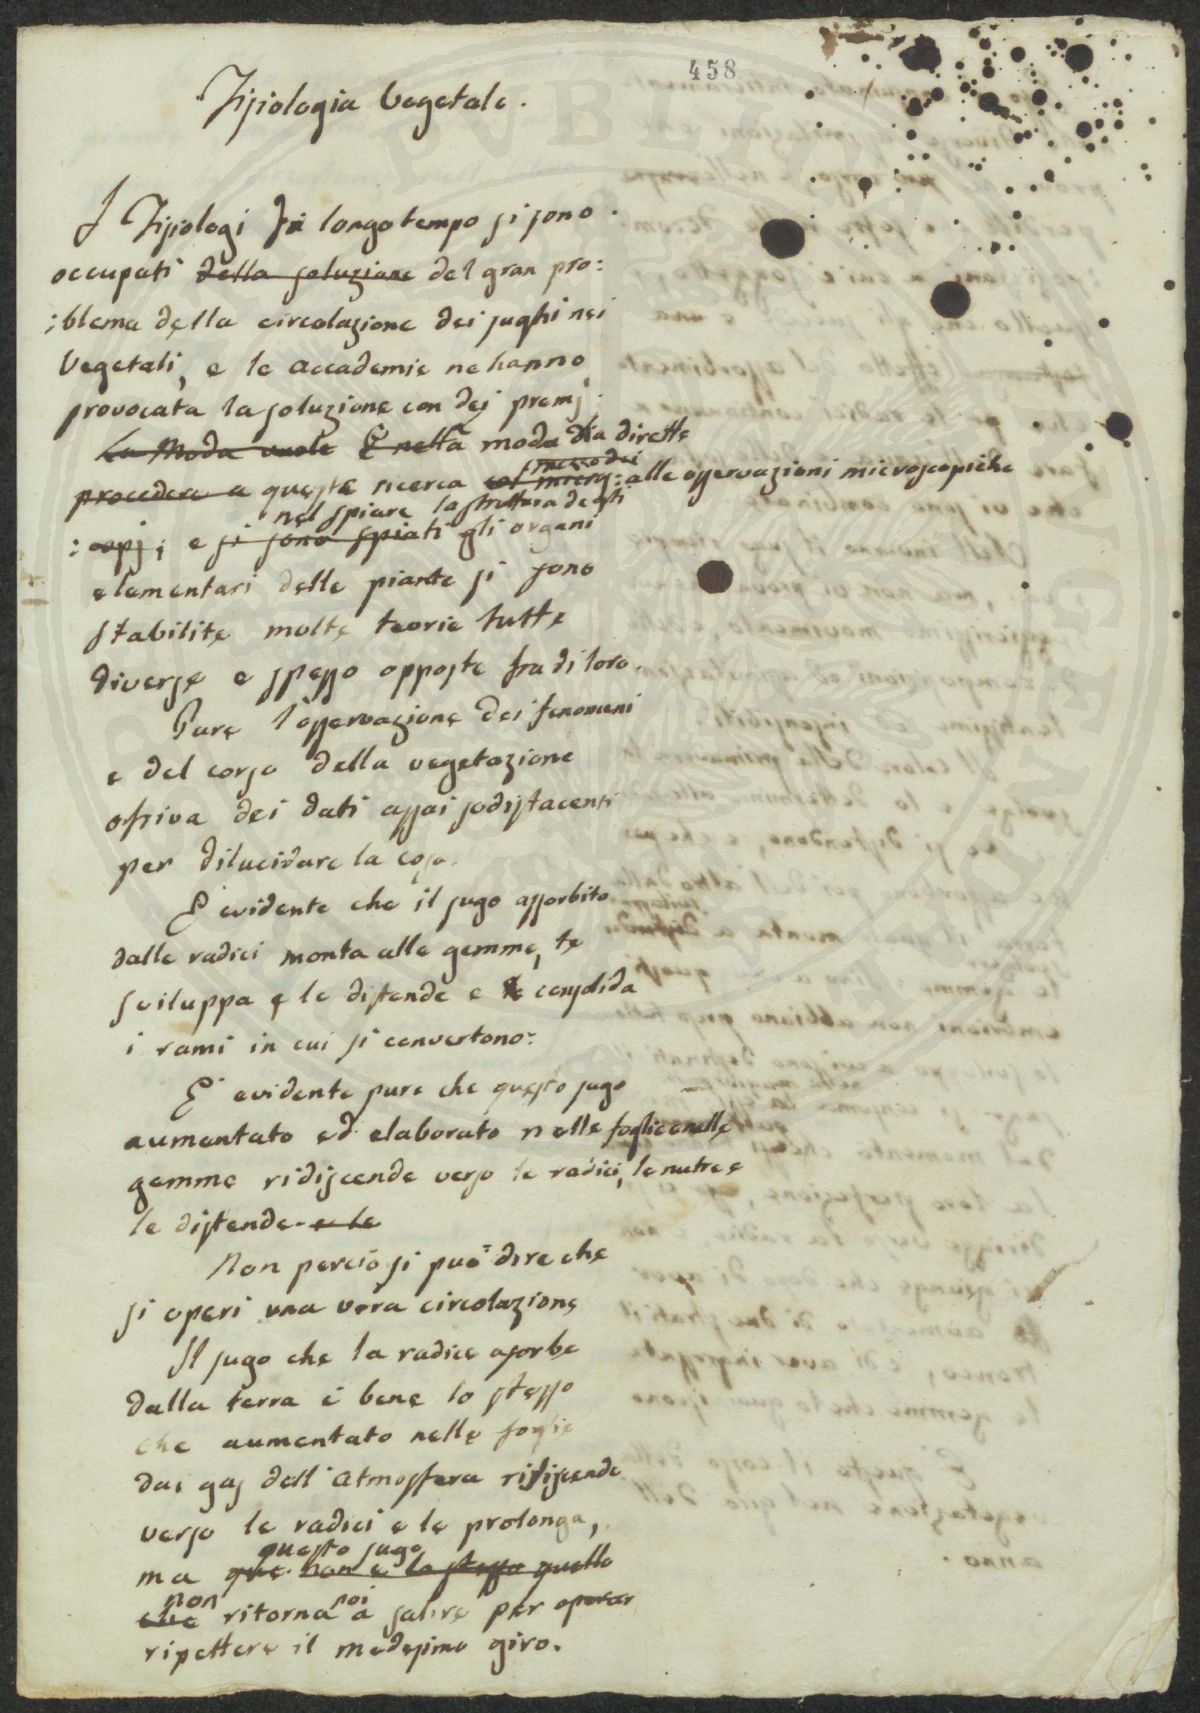 458
Fisiologia Vegetale.
I Fisiologi da longo tempo si sono
occupati della soluzione del gran pro:
:blema della circolazione dei sughi nei
Vegetali, e le accademie ne hanno
provocata la soluzione con dei premj.
La Moda vuole È nella moda dia dirette
procedere a queste ricerca alle osservazioni microscopiche
nel spiare la struttura degli
:copj; e si sono spiati gli organi
elementari delle piante si sono
stabilite molte teorie tutte
diverse e spesso opposte fra di loro.
Pure l'osservazione dei fenomeni
e del corso della vegetazione
ofriva dei dati assai sodisfacenti
per dilucidare la cosa.
E' evidente che il sugo assorbito
dalle radici monta alle gemme, le
sviluppa e le distende e le consolida
i rami in cui si convertono:
E' evidente pure che questo sugo
aumentato ed elaborato nelle foglie e nelle
gemme ridiscende verso le radici, le nutre e
le distende. e le
Non perciò si può dire che
si operi una vera circolazione
Il sugo che la radice asorbe
dalla terra è bene lo stesso
che aumentato nelle foglie
dai gas dell'atmosfera ridiscende
verso le radici e le prolonga,
questo sugo
ma que non è lo stesso quello
non poi
che ritorna a salire per operar
ripettere il medesimo giro.